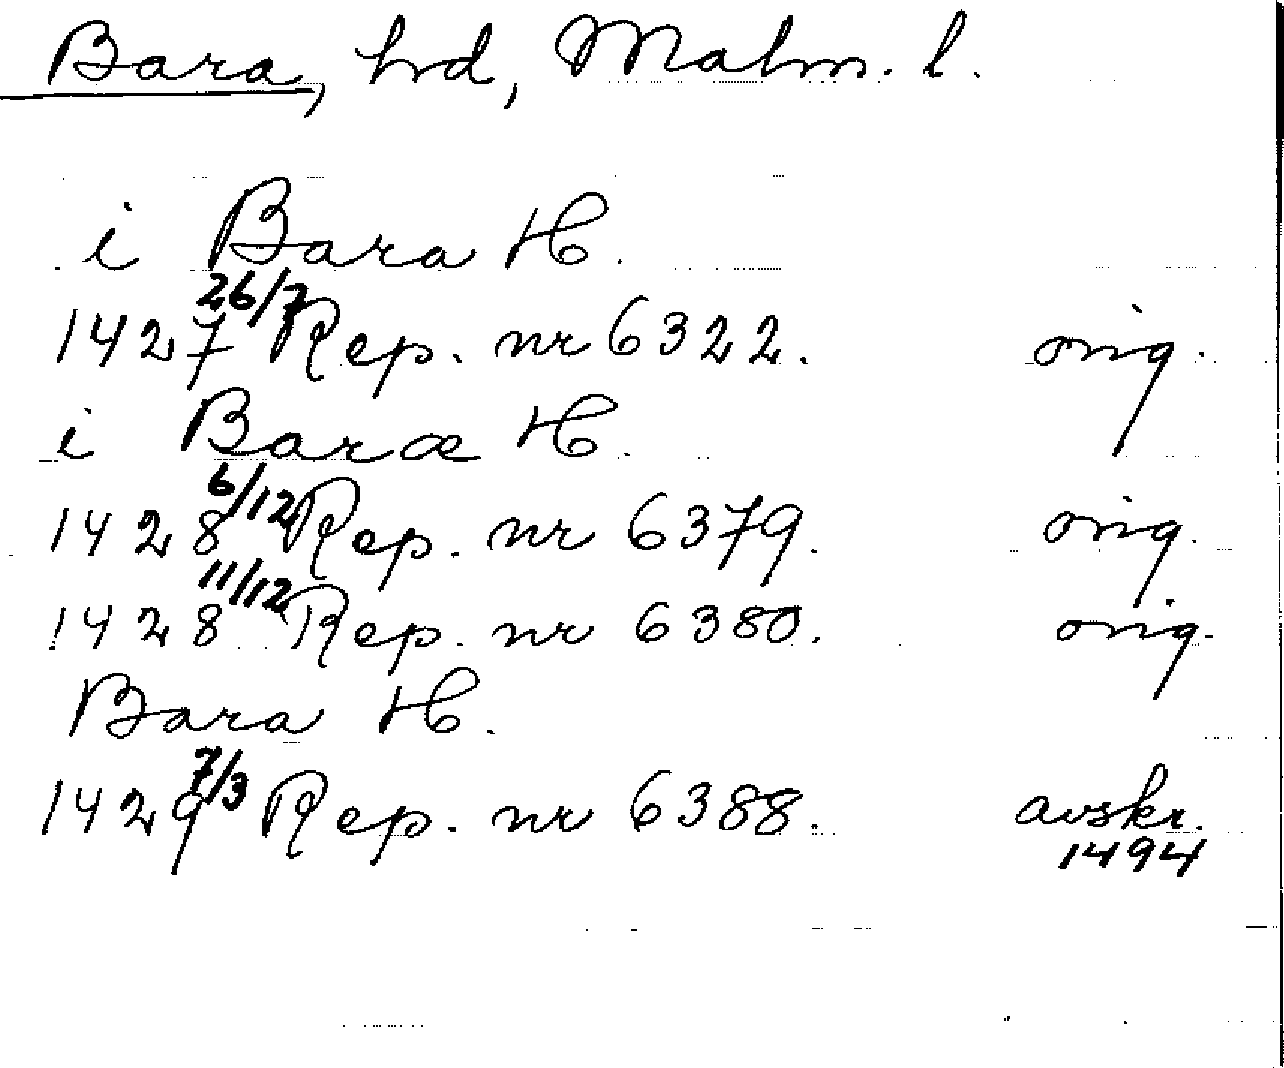 Bara, hd, Malm. l.
i Bara H.
1427 26/7 Rep. nr 6322. orig.
i Baræ H.
1428 6/12 Rep. nr 6379. orig.
1428 11/12 Rep. nr 6380. orig.
Bara H.
1429 7/3 Rep. nr 6388. avskr.
1494